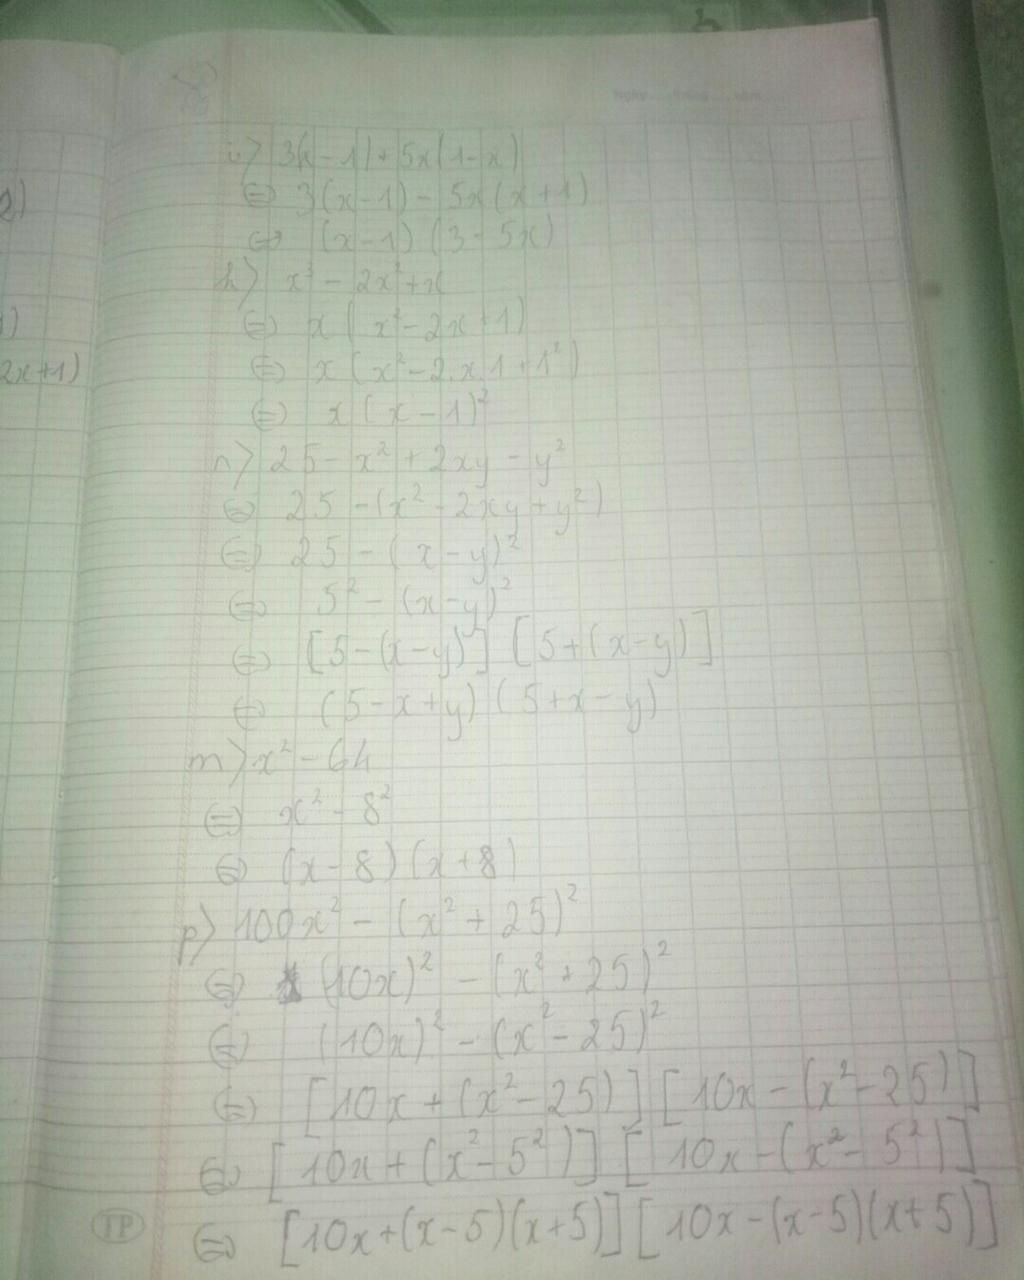 i) 3(x-1)+5x(1-x)
g) ⇔ 3(x-1)-5x(x+1)
⇔ (x-1)(3-5x)
k) x³-2x²+x
) ⇔ x(x²-2x+1)
2x+1) ⇔ x(x²-2.x.1+1²)
⇔ x(x-1)²
n) 25-x²+2xy-y²
⇔ 25-(x²-2xy+y²)
⇔ 25-(x-y)²
⇔ 5²-(x-y)²
⇔ [5-(x-y)] [5+(x-y)]
⇔ (5-x+y)(5+x-y)
m) x²-64
⇔ x²-8²
⇔ (x-8)(x+8)
p) 100x²-(x²+25)²
⇔ (10x)²-(x²+25)²
⇔ (10x)²-(x²-25)²
⇔ [10x+(x²-25)][10x-(x²-25)]
⇔ [10x+(x²-5²)][10x-(x²-5²)]
⇔ [10x+(x-5)(x+5)][10x-(x-5)(x+5)]
TP